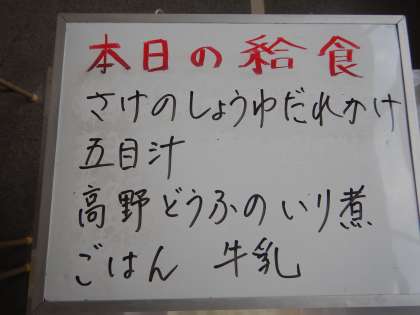 本日の給食
さけのしょうゆだれかけ
五目汁
高野どうふのいり煮
ごはん 牛乳